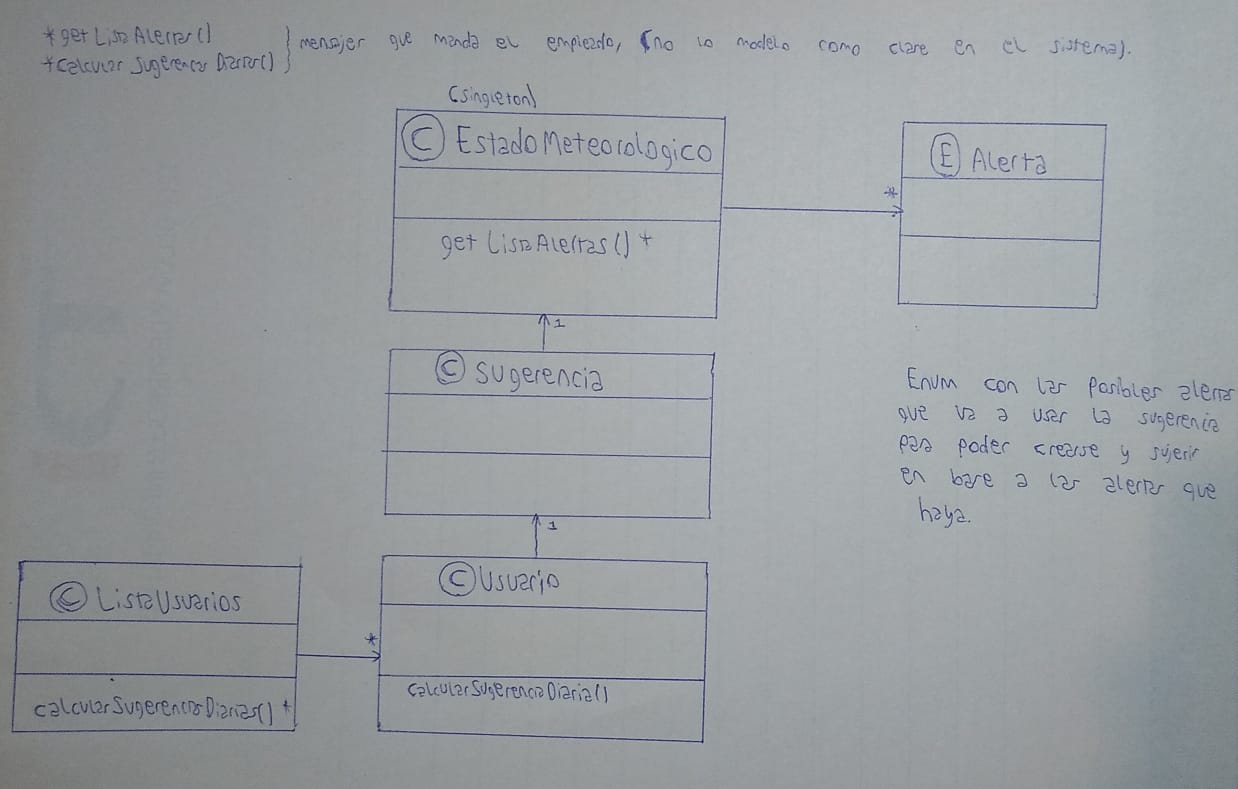 * getListaAlertas()
* calcularSugerenciasDiarias()
} mensajes que manda el empleado, (no lo modelo como clase en el sistema).
(singleton)
C EstadoMeteorologico
getListaAlertas() *
E Alerta
*
1
C Sugerencia
Enum con las posibles alertas
que va a usar la sugerencia
para poder crearse y sujerir
en base a las alertas que
haya.
1
C Usuario
calcularSugerenciaDiaria()
C ListaUsuarios
*
calcularSugerenciasDiarias() *